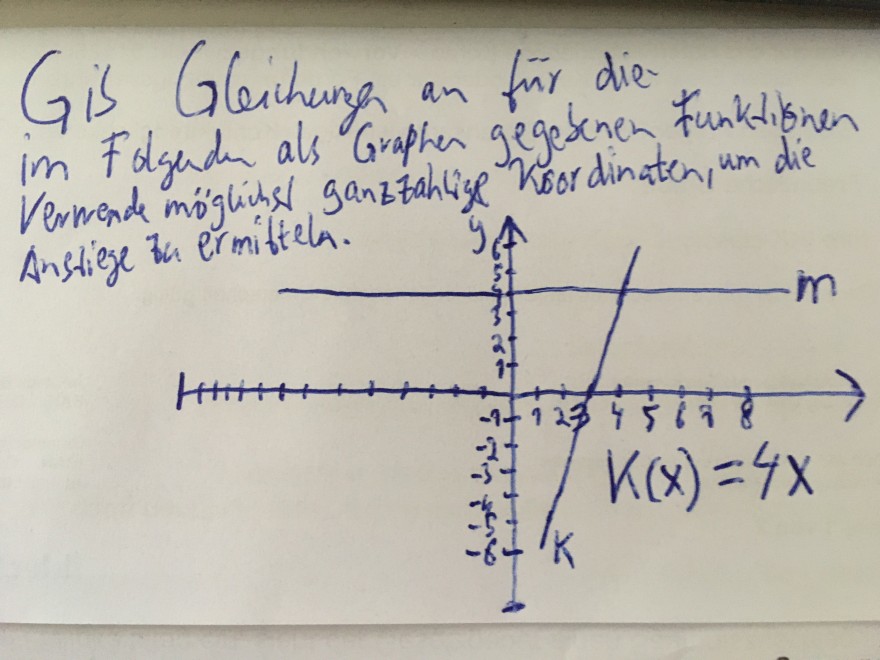 Gib Gleichungen an für die
im Folgenden als Graphen gegebenen Funktionen
Verwende möglichst ganzzahlige Koordinaten, um die
Anstiege zu ermitteln.
y
6
5
4
m
3
2
1
-1 1 2 3 4 5 6 7 8
-2
-3
K(x) = 4x
-4
-5
-6 K